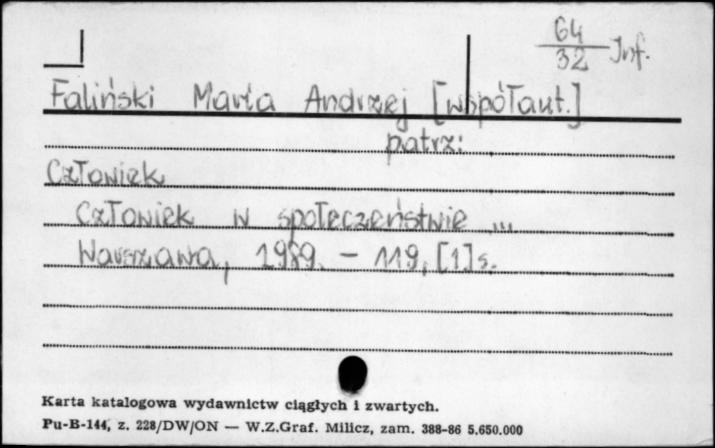 64
32 Inf.
Faliński Maria Andrzej [współaut.]
patrz:
Człowiek
Człowiek w społeczeństwie ...
Warszawa, 1989. - 119, [1] s.
Karta katalogowa wydawnictw ciągłych i zwartych.
Pu-B-144, z. 228/DW/ON — W.Z.Graf. Milicz, zam. 388-86 5.650.000